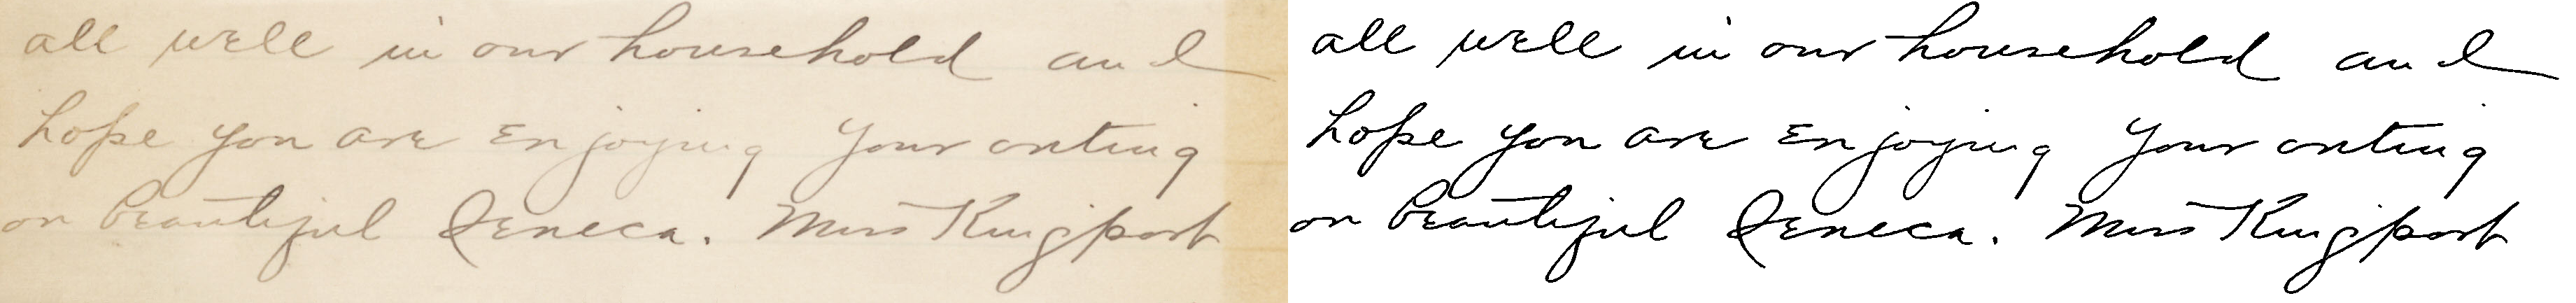 all well in our household and
hope you are enjoying your outing
on beautiful Seneca. Miss Kingport
all well in our household and
hope you are enjoying your outing
on beautiful Seneca. Miss Kingport